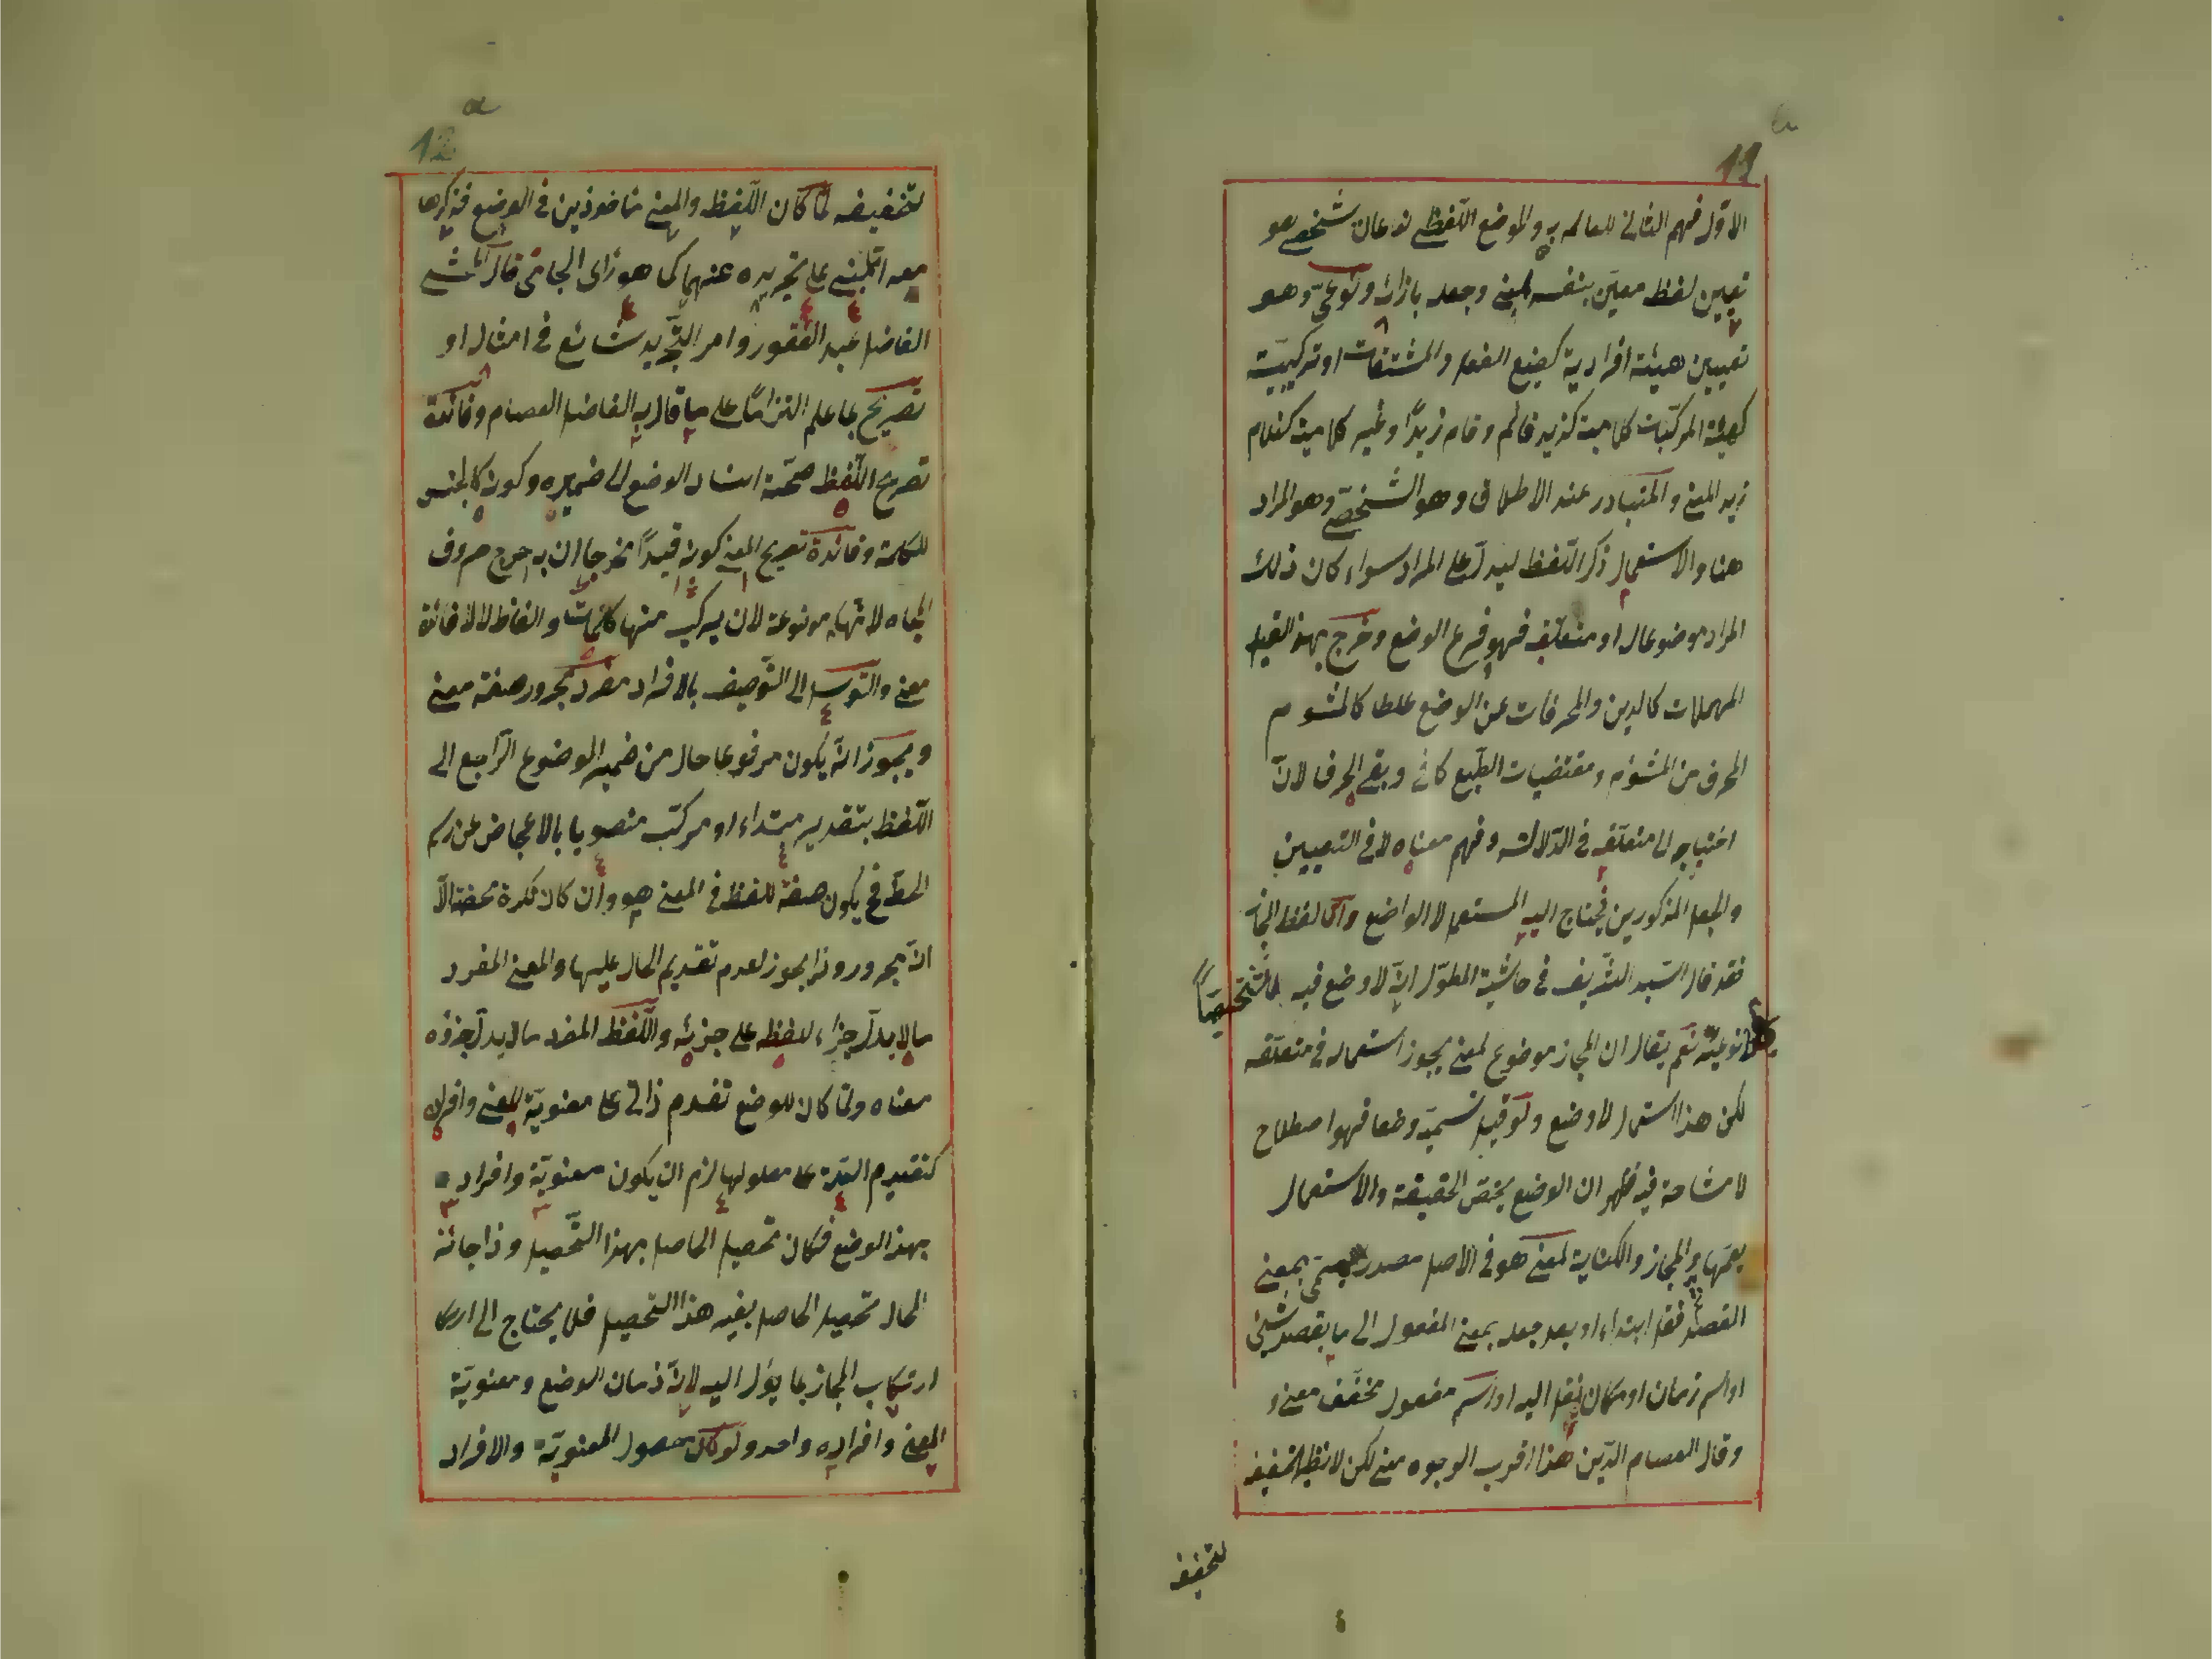 11
الاول فهم الثانى للعالم به والوضع اللفظى نوعان شخصى هو
تعيين لفظ معين بنفسه لمعنى وجعله بازائه ونوعى وهو
تعيين هيئة افرادية كصيغ الفعل والمشتقات او تركيبية
كهيئة المركبات كلامية كزيد قائم وقام زيدًا وغير كلامية كغلام
زيد المعنى والمتبادر عند الاطلاق وهو الشخصى وهو المراد
هنا والاستعمال ذكر اللفظ ليدل على المراد سواء كان ذلك
المراد موضوعا له او متعلقه فهو فرع الوضع وخرج بهذا القيد
المهملات كالدين والمحرفات عن الوضع غلطا كالمشوم
المحرف من المشؤم ومقتضيات الطبع كاخ وبقى الحرف لان
احتياجه الى متعلقه فى الدلالة وفهم معناه لا فى التعيين
والجعل المذكورين فيحتاج اليه المستعمل لا الواضع واما لفظ المجاز
فقد قال السيد الشريف فى حاشية المطول انه لا وضع فيه لا شخصيًا
ولا نوعيا نعم يقال ان المجاز موضوع لمعنى يجوز استعماله فى متعلقه
لكن هذا استعمال لا وضع ولو قيل تسميته وضعا فهو اصطلاح
لا مشاحة فيه فظهر ان الوضع يخص الحقيقة والاستعمال
يعمها والمجاز والكناية لمعنى هو فى الاصل مصدر ميمى بمعنى
القصد فنقل ابتداء او بعد جعله بمعنى المفعول الى ما يقصد بشئ
او اسم زمان او مكان نقل اليه او اسم مفعول مخفف معنى و
وقال العصام الدين هذا اقرب الوجوه معنى لكن لا نظير لتخفيفه
لتخفيفه
12
لتخفيفه لما كان اللفظ والمعنى مأخوذين فى الوضع فذكرهما
معه مبنى على تجريده عنهما كما هو رأى الجامى قال المحشى
الفاضل عبد الغفور وامر التجريد شائع فى امثاله او
تصريح بما علم التزامًا على ما قال به الفاضل العصام وفائدة
تصريح اللفظ صحة اسناد الوضع الى ضميره وكونه كالجنس
للكلمة وفائدة تصريح المعنى كونه قيدًا مخرجا اذ به خرج حروف
الهجاء لانها موضوعة لان يركب منها كلمات والفاظ لا لافادة
معنى والتوسل الى التوصيف بالافراد مفرد مجرور صفة معنى
ويجوز انه يكون مرفوعا حال من ضمير الموضوع الراجع الى
اللفظ بتقدير مبتداء او مركب منصوبا بالاغماض عن رسم
الخط فح يكون صفة للفظ فى المعنى هو وان كان نكرة محضة الا
انه مجرور وذا يجوز لعدم تقديم الحال عليها والمعنى المفرد
ما لا يدل جزء لفظه على جزئه واللفظ المفرد ما لا يدل جزؤه
معناه ولما كان للوضع تقدم ذاتى على معنوية المعنى وافراده
كتقديم العلة على معلولها لزم ان يكون معنوية وافراد
بهذا الوضع فكان تحصيل الحاصل بهذا التحصيل وذا جائز
المحال تحصيل الحاصل بغير هذا التحصيل فلا يحتاج الى
ارتكاب المجاز بما يؤل اليه لان زمان الوضع ومعنوية
المعنى وافراده واحد ولو كان حصول المعنوية والافراد